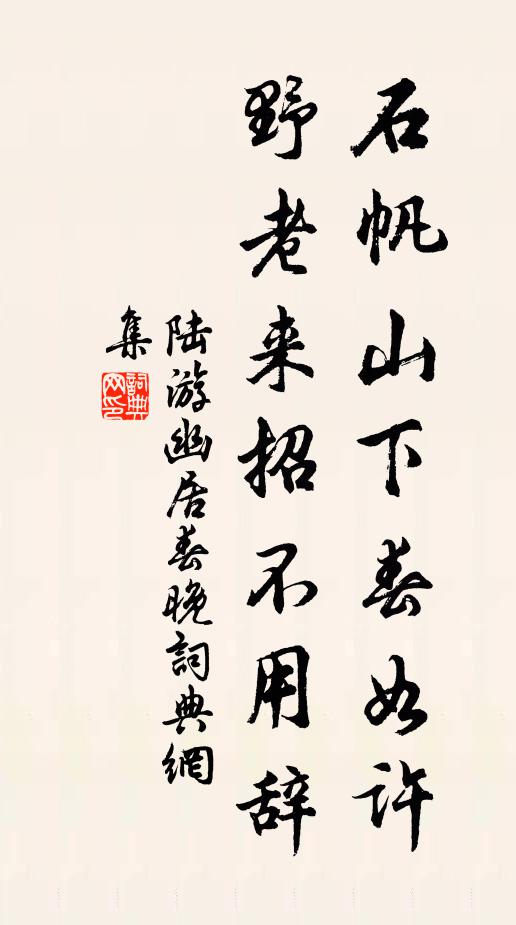 石帆山下春如许
野老来招不用辞
陆游幽居春晚詞典網
集
詞典
网印